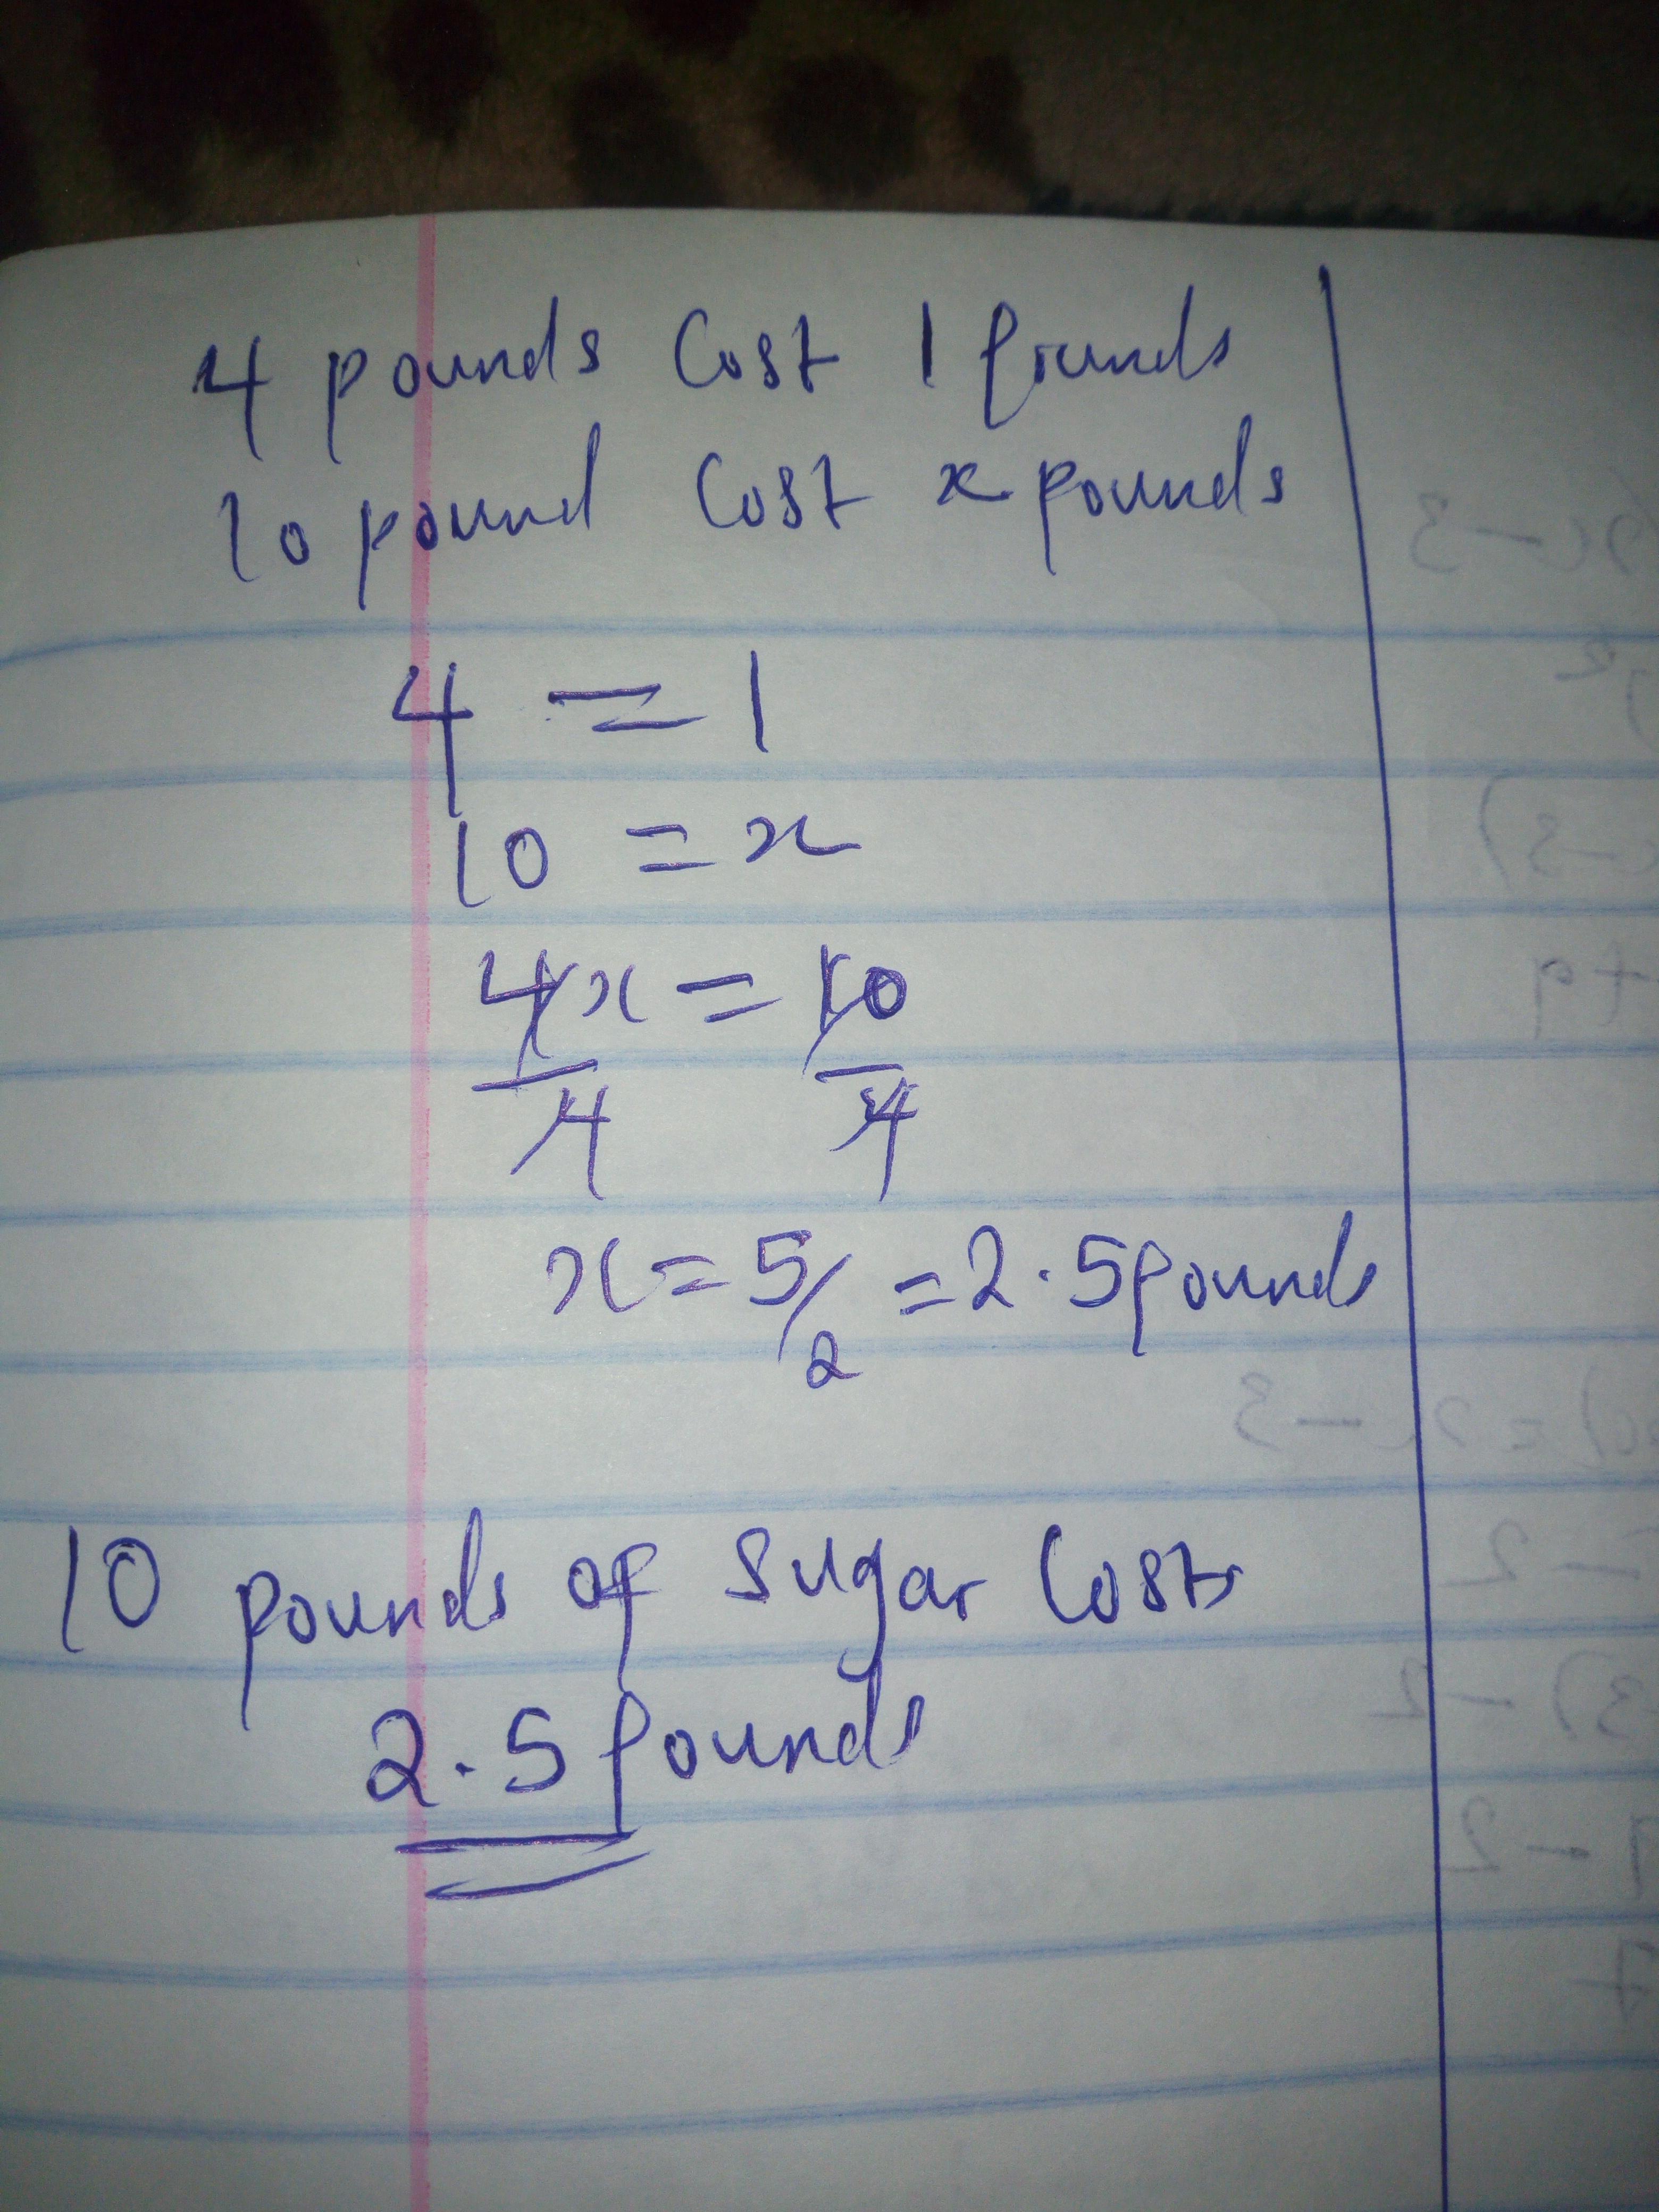 4 pounds cost 1 pounds
10 pound cost x pounds
4 = 1
10 = x
4x = 10
4 4
x = 5/2 = 2.5 pounds
10 pounds of sugar costs
2.5 pounds
x-3
-3)
+9
) = x-3
- 2
3) - 2
- 2
7